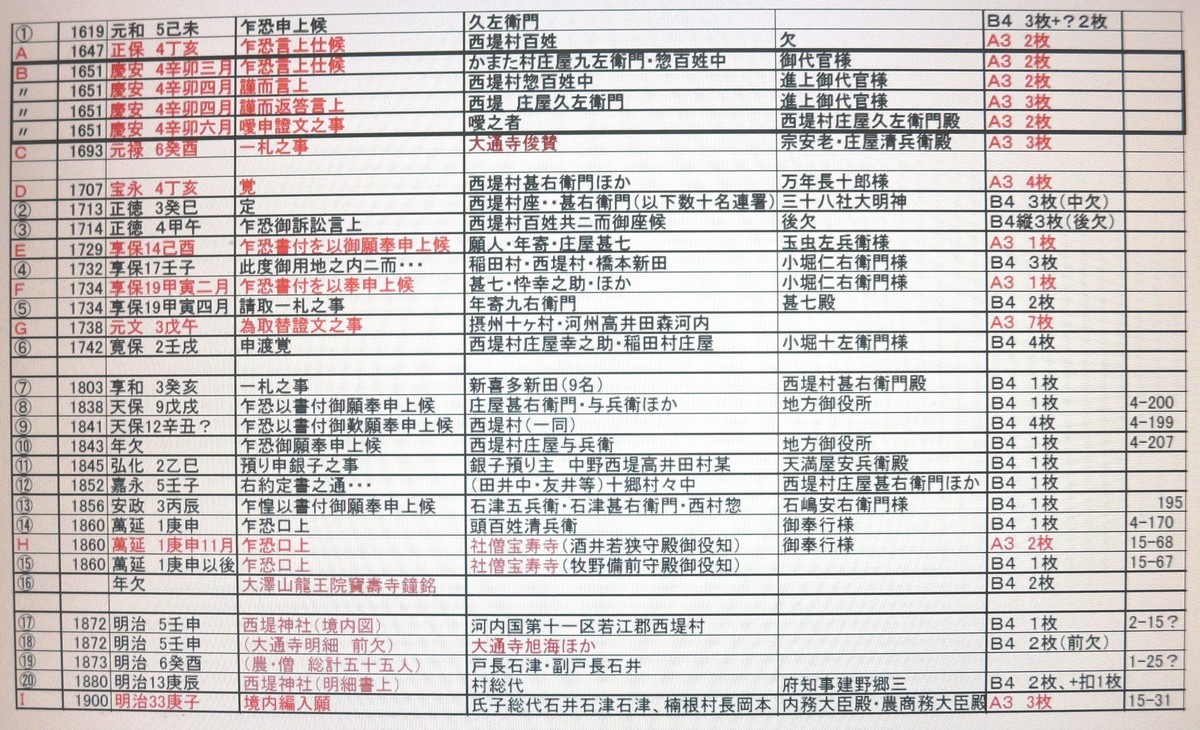 ① 1619 元和 5己未 乍恐申上候 久左衛門 B4 3枚+?2枚
A 1647 正保 4丁亥 乍恐言上仕候 西堤村百姓 欠 A3 2枚
B 1651 慶安 4辛卯三月 乍恐言上仕候 かまた村庄屋九左衛門・惣百姓中 御代官様 A3 2枚
〃 1651 慶安 4辛卯四月 謹而言上 西堤村惣百姓中 進上御代官様 A3 2枚
〃 1651 慶安 4辛卯四月 謹而返答言上 西堤 庄屋久左衛門 進上御代官様 A3 3枚
〃 1651 慶安 4辛卯六月 噯申證文之事 噯之者 西堤村庄屋久左衛門殿 A3 2枚
C 1693 元禄 6癸酉 一札之事 大通寺俊賛 宗安老・庄屋清兵衛殿 A3 3枚
D 1707 宝永 4丁亥 覚 西堤村甚右衛門ほか 万年長十郎様 A3 4枚
② 1713 正徳 3癸巳 定 西堤村座・・甚右衛門(以下数十名連署) 三十八社大明神 B4 3枚(中欠)
③ 1714 正徳 4甲午 乍恐御訴訟言上 西堤村百姓共二而御座候 後欠 B4縦3枚(後欠)
E 1729 享保14己酉 乍恐書付を以御願奉申上候 願人・年寄・庄屋甚七 玉虫左兵衛様 A3 1枚
④ 1732 享保17壬子 此度御用地之内二而・・・ 稲田村・西堤村・橋本新田 小堀仁右衛門様 B4 3枚
F 1734 享保19甲寅二月 乍恐書付を以奉申上候 甚七・忰幸之助・ほか 小堀仁右衛門様 A3 1枚
⑤ 1734 享保19甲寅四月 請取一札之事 年寄九右衛門 甚七殿 B4 2枚
G 1738 元文 3戊午 為取替證文之事 摂州十ヶ村・河州高井田森河内 A3 7枚
⑥ 1742 寛保 2壬戌 申渡覚 西堤村庄屋幸之助・稲田村庄屋 小堀十左衛門様 B4 4枚
⑦ 1803 享和 3癸亥 一札之事 新喜多新田(9名) 西堤村甚右衛門殿 B4 1枚
⑧ 1838 天保 9戊戌 乍恐以書付御願奉申上候 庄屋甚右衛門・与兵衛ほか 地方御役所 B4 1枚 4-200
⑨ 1841 天保12辛丑? 乍恐以書付御歎願奉申上候 西堤村(一同) B4 4枚 4-199
⑩ 1843 年欠 乍恐御願奉申上候 西堤村庄屋与兵衛 地方御役所 B4 1枚 4-207
⑪ 1845 弘化 2乙巳 預り申銀子之事 銀子預り主 中野西堤高井田村某 天満屋安兵衛殿 B4 1枚
⑫ 1852 嘉永 5壬子 右約定書之通・・・ (田井中・友井等)十郷村々中 西堤村庄屋甚右衛門ほか B4 1枚
⑬ 1856 安政 3丙辰 乍惶以書付御願奉申上候 石津五兵衛・石津甚右衛門・西村惣 石嶋安右衛門様 B4 1枚 195
⑭ 1860 萬延 1庚申 乍恐口上 頭百姓清兵衛 御奉行様 B4 1枚 4-170
H 1860 萬延 1庚申11月 乍恐口上 社僧宝寿寺(酒井若狭守殿御役知) 御奉行様 A3 2枚 15-68
⑮ 1860 萬延 1庚申以後 乍恐口上 社僧宝寿寺(牧野備前守殿御役知) B4 1枚 15-67
⑯ 年欠 大澤山龍王院寶壽寺鐘銘 B4 2枚
⑰ 1872 明治 5壬申 西堤神社(境内図) 河内国第十一区若江郡西堤村 B4 1枚 2-15?
⑱ 1872 明治 5壬申 (大通寺明細 前欠) 大通寺旭海ほか B4 2枚(前欠)
⑲ 1873 明治 6癸酉 (農・僧 総計五十五人) 戸長石津・副戸長石井 1-25?
⑳ 1880 明治13庚辰 西堤神社(明細書上) 村総代 府知事建野郷三 B4 2枚、+扣1枚
I 1900 明治33庚子 境内編入願 氏子総代石井石津石津、楠根村長岡本 内務大臣殿・農商務大臣殿 A3 3枚 15-31